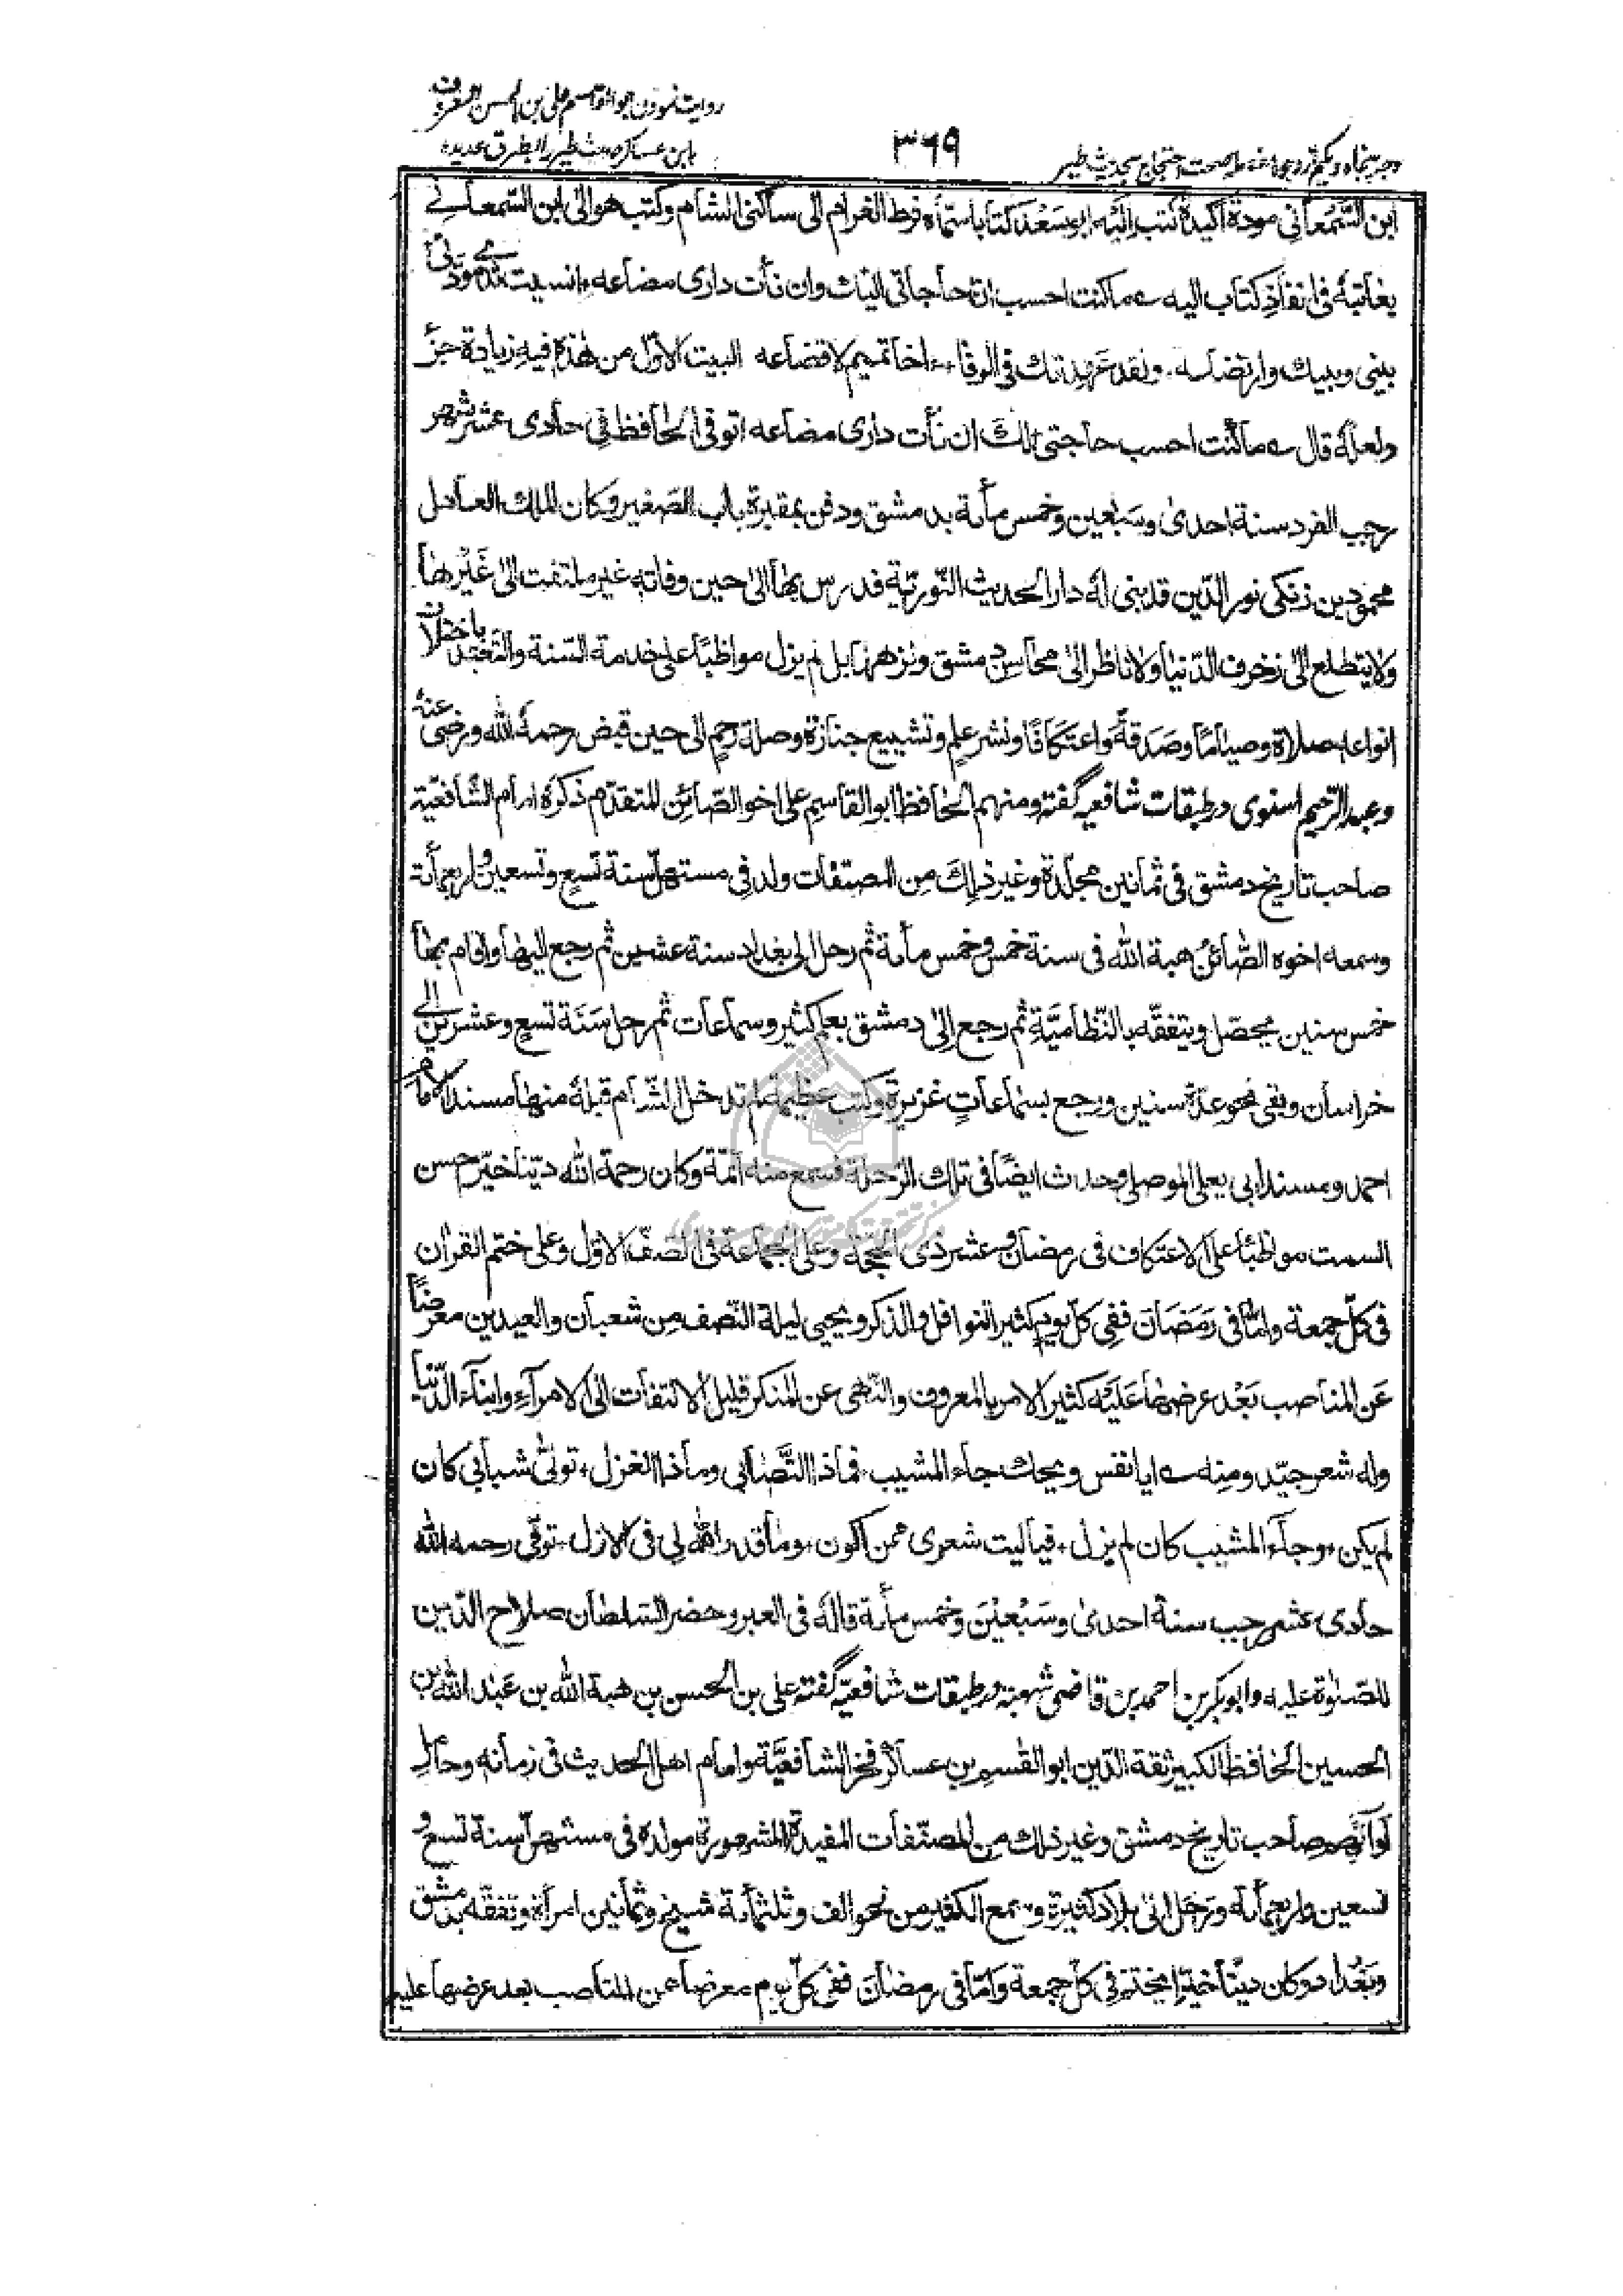 روایت نمودن ابو القاسم علی بن الحسن المعروف
بابن عساکر حدیث طیر را بطرق عدیده
۳۶۹
وجه پنجاه و یکم از وجوه صحت احتجاج بحدیث طیر
ابن السّمعانی مودة اکیدة کتب الیه ابو سعد کتابا سماه فرط الغرام الی ساکنی الشام وکتب هو الی ابن السّمعانی
یعاتبه فی انفاذ کتاب الیه ے ما کنت احسب ان حاجاتی الیك وان نأت داری مضاعه انسیت ثدی مودتی
بینی وبینك وارتضاعه ولقد عهدتك فی الوفاء اخا تمیم لا قضاعه البیت الاوّل من هذه فیه زیادة جزء
ولعله قال ے ما کنت احسب حاجتی لك ان نأت داری مضاعه توفی الحافظ فی حادی عشر شهر
رجب الفرد سنة احدی وسبعین وخمس مأة بدمشق ودفن بمقبرة باب الصغیر وکان الملك العادل
محمود بن زنکی نور الدّین قد بنی له دار الحدیث النّوریّة فدرس بها الی حین وفاته غیر ملتفت الی غیرها
ولا یتطلع الی زخرف الدّنیا ولا ناظر الی محاسن دمشق ونزهها بل لم یزل مواظبًا علی خدمة السّنة والتّعبّد باختلاف
انواعه صلاة وصیامًا وصدقةً واعتکافًا ونشر علم وتشییع جنازة وصلة رحم الی حین قبض رحمه الله ورضی عنه
وعبد الرّحیم اسنوی در طبقات شافعیه گفته ومنهم الحافظ ابو القاسم علی اخو الصّائن المتقدّم ذکره امام الشّافعیّة
صاحب تاریخ دمشق فی ثمانین مجلّدة وغیر ذلك من المصنّفات ولد فی مستهلّ سنة تسع وتسعین واربعمأة
وسمعه اخوه الصّائن هبة الله فی سنة خمس وخمس مأة ثم رحل الی بغداد سنة عشرین ثم رجع الیها واقام بها
خمس سنین یحصّل ویتفقّه بالنّظامیّة ثم رجع الی دمشق بعلم کثیر وسماعات ثم رحل سنة تسع وعشرین الی
خراسان وبقی نحو عدّة سنین ورجع بسماعاتٍ غزیرة وکتب عظیمة لم تدخل الشّام قبله منها مسند الامام
احمد ومسند ابی یعلی الموصلی وحدث ایضًا فی تلك الرّحلة فسمع منه ائمّة وکان رحمة الله دیّنا خیّر حسن
السمت مواظبًا علی الاعتکاف فی رمضان وعشر ذی الحجّة وعلی الجماعة فی الصّفّ الاوّل وعلی ختم القران
فی کلّ جمعة وامّا فی رمضان ففی کلّ یوم کثیر النوافل والذکر ویحیی لیلة النّصف من شعبان والعیدین معرضًا
عن المناصب بعد عرضها علیه کثیر الامر بالمعروف والنّهی عن المنکر قلیل الالتفات الی الامرآء وابنآء الدّنیا
وله شعر جیّد ومنه ے ایا نفس ویحك جاء المشیب فماذا التّصابی وماذا الغزل تولّی شبابی کان
لم یکن وجآء المشیب کان لم یزل فیا لیت شعری ممن اکون وما قدر الله لی فی الازل توفّی رحمه الله
حادی عشر رجب سنة احدی وسبعین وخمس مأة قاله فی العبر وحضر السّلطان صلاح الدّین
للصّلوة علیه وابو بکر بن احمد بن قاضی شهبه در طبقات شافعیّه گفته علی بن الحسن بن هبة الله بن عبد الله بن
الحسین الحافظ الکبیر ثقة الدّین ابو القسم بن عساکر فخر الشافعیّة وامام اهل الحدیث فی زمانه وحامل
لوآئهم صاحب تاریخ دمشق وغیر ذلك من المصنّفات المفیدة المشهورة مولده فی مستهلّ سنة تسع و
تسعین واربعمأة ورحل الی بلاد کثیرة وسمع الکثیر من نحو الف وثلثمأة شیخ وثمانین امرأة وتفقّه بدمشق
وبغداد وکان دیّنا خیّرا یختم فی کلّ جمعة وامّا فی رمضان ففی کلّ یوم معرضا عن المناصب بعد عرضها علیه